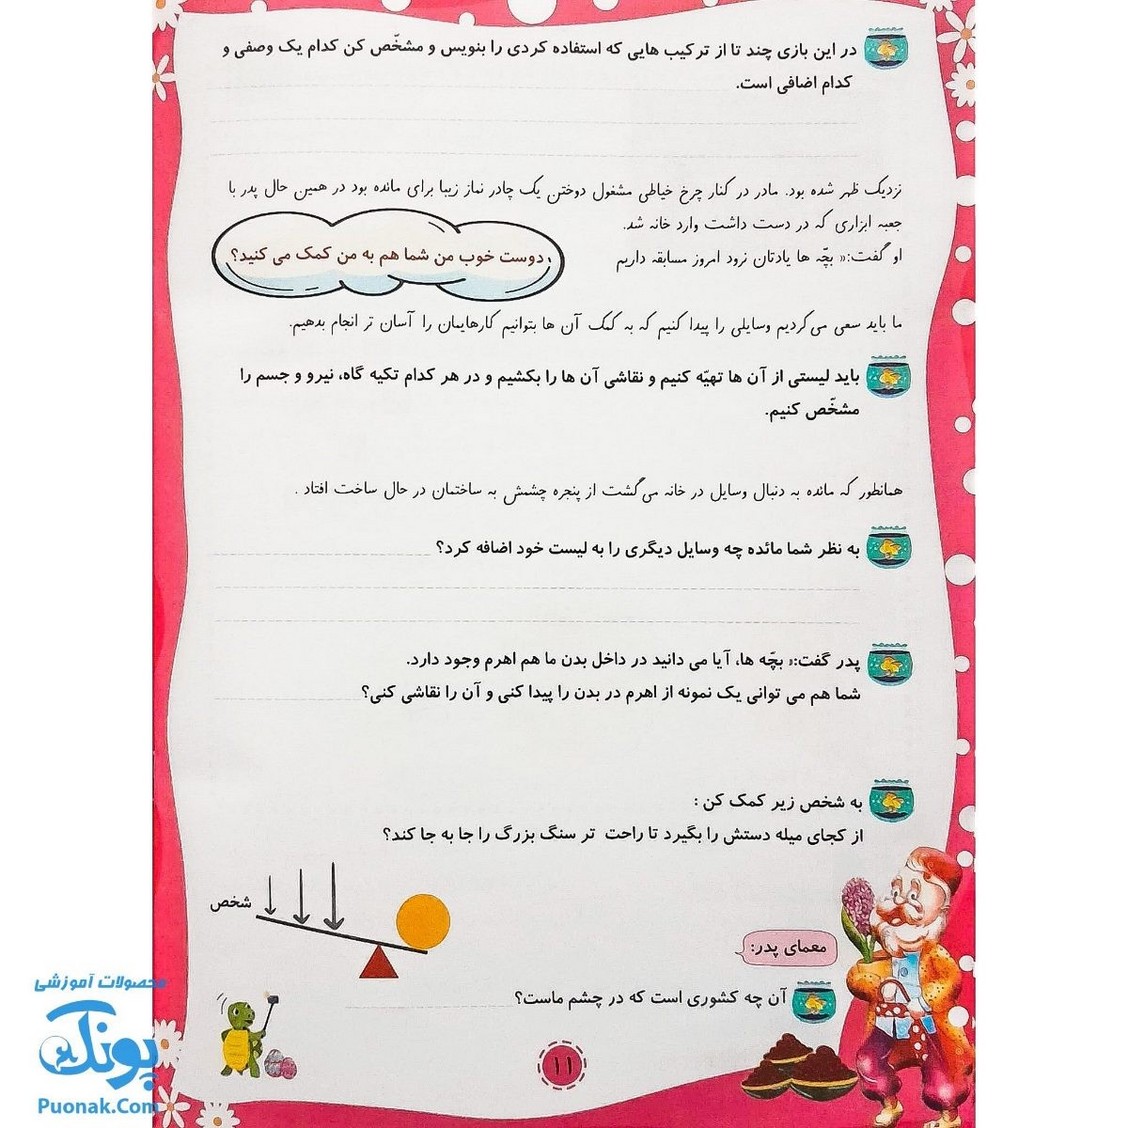 در این بازی چند تا از ترکیب هایی که استفاده کردی را بنویس و مشخّص کن کدام یک وصفی و
کدام اضافی است.
نزدیک ظهر شده بود. مادر در کنار چرخ خیاطی مشغول دوختن یک چادر نماز زیبا برای مائده بود در همین حال پدر با
جعبه ابزاری که در دست داشت وارد خانه شد.
او گفت:« بچّه ها یادتان نرود امروز مسابقه داریم
دوست خوب من شما هم به من کمک می کنید؟
ما باید سعی می‌کردیم وسایلی را پیدا کنیم که به کمک آن ها بتوانیم کارهایمان را آسان تر انجام بدهیم.
باید لیستی از آن ها تهیّه کنیم و نقاشی آن ها را بکشیم و در هر کدام تکیه گاه، نیرو و جسم را
مشخّص کنیم.
همانطور که مائده به دنبال وسایل در خانه می‌گشت از پنجره چشمش به ساختمان در حال ساخت افتاد .
به نظر شما مائده چه وسایل دیگری را به لیست خود اضافه کرد؟
پدر گفت:« بچّه ها، آیا می دانید در داخل بدن ما هم اهرم وجود دارد.
شما هم می توانی یک نمونه از اهرم در بدن را پیدا کنی و آن را نقاشی کنی؟
به شخص زیر کمک کن :
از کجای میله دستش را بگیرد تا راحت تر سنگ بزرگ را جا به جا کند؟
شخص
معمای پدر:
آن چه کشوری است که در چشم ماست؟
۱۱
محصولات آموزشی
پونک
Puonak.Com